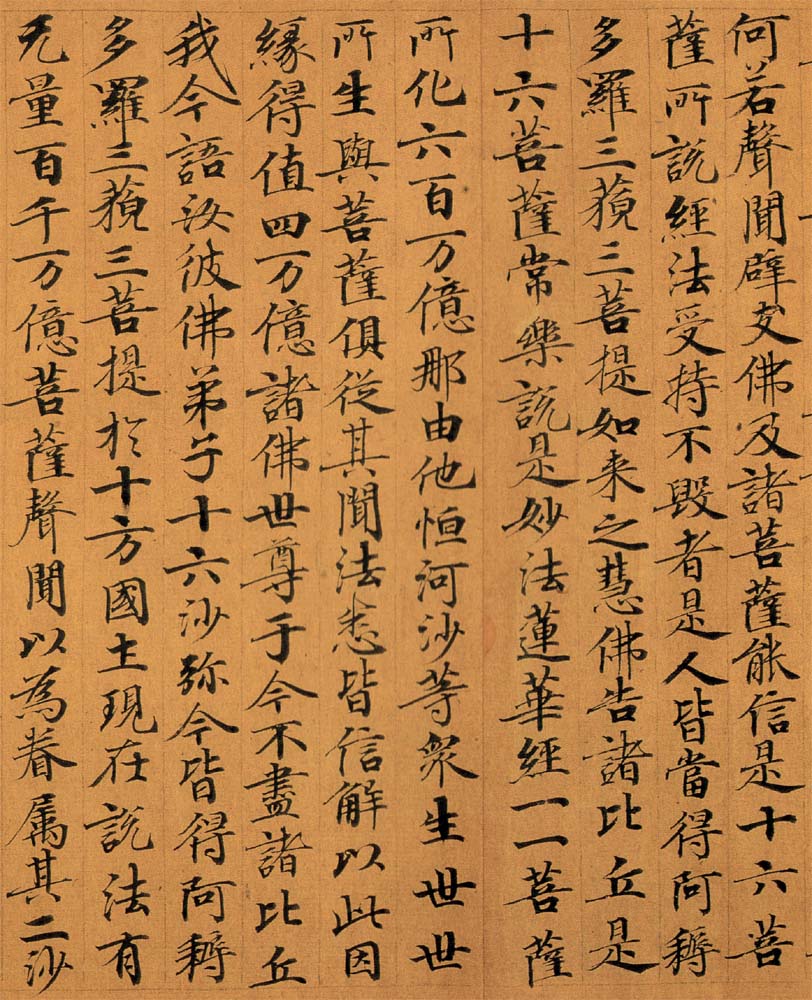 何若聲聞辟支佛及諸菩薩能信是十六菩
薩所說經法受持不毀者是人皆當得阿耨
多羅三藐三菩提如来之慧佛告諸比丘是
十六菩薩常樂說是妙法蓮華經一一菩薩
所化六百万億那由他恒河沙等衆生世世
所生與菩薩俱從其聞法悉皆信解以此因
緣得值四万億諸佛世尊于今不盡諸比丘
我今語汝彼佛弟子十六沙弥今皆得阿耨
多羅三藐三菩提於十方國土現在說法有
无量百千万億菩薩聲聞以為眷属其二沙